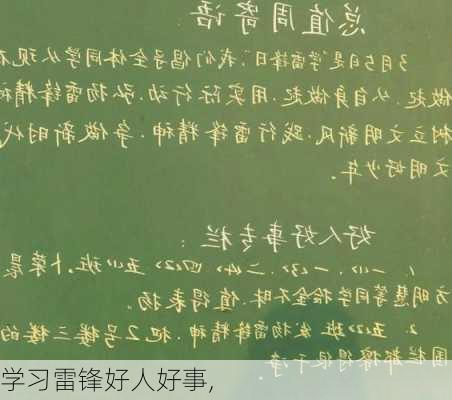 总值周寄语
3月5日是"学雷锋日",我们倡导全体同学从现在
做起.从自身做起.用实际行动.弘扬雷锋精神
树立文明新风.践行雷锋精神.争做新时代
文明好少年。
好人好事专栏:
1. 一(1).一(3).二(4) 四(2) 五(1)班.卜荣晨
方明慧等同学拾金不昧.值得表扬。
2. 五(2)班.发扬雷锋精神.把2号楼三楼的
围栏都擦得很干净
学习雷锋好人好事,